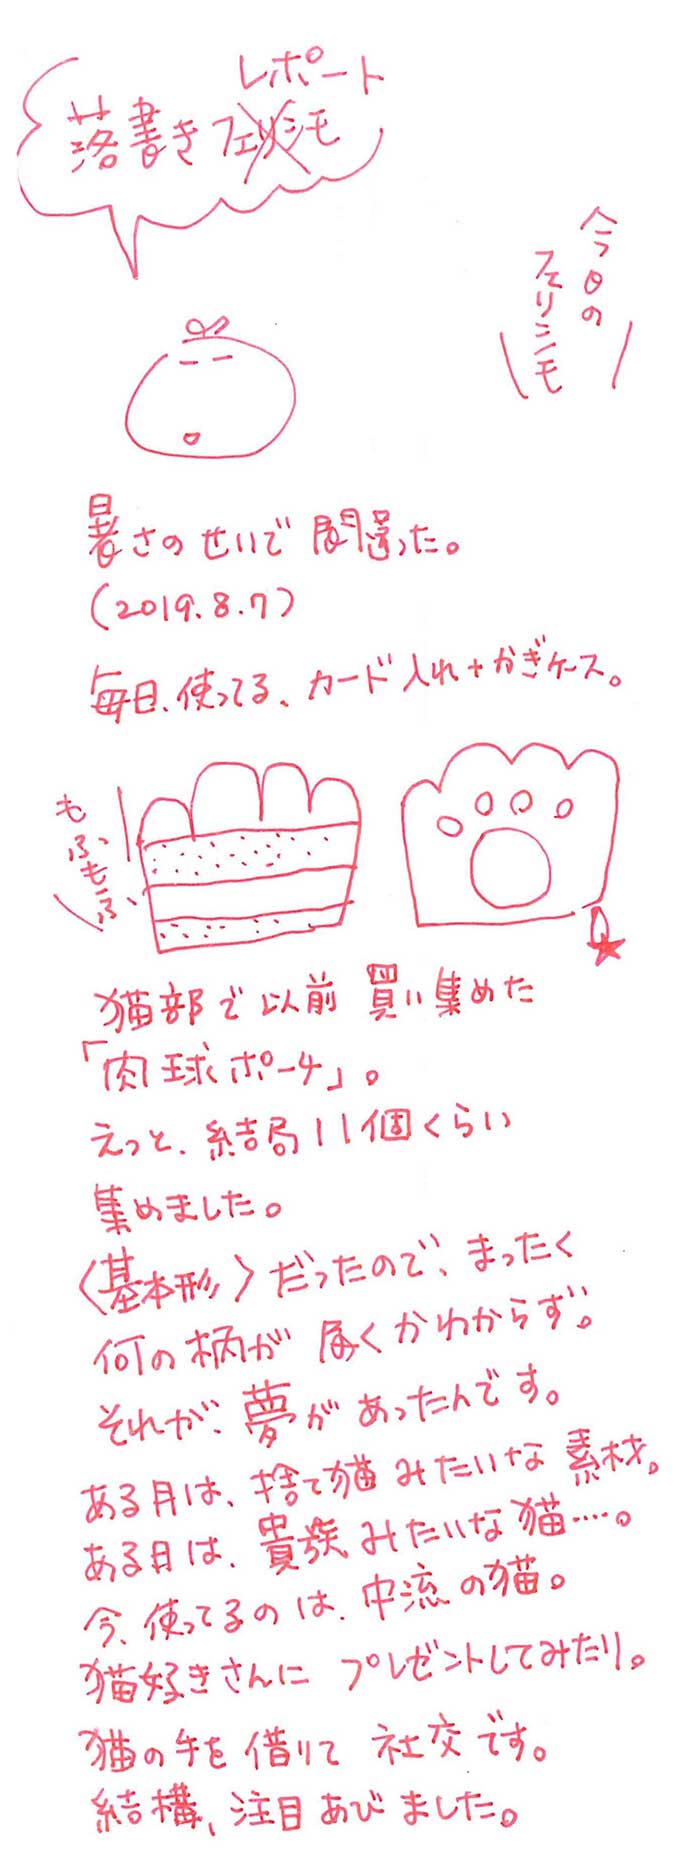 レポート
落書きフェリシモ
今日の
フェリシモ
暑さのせいで間違った。
(2019.8.7)
毎日、使ってる、カード入れ+かぎケース。
もふもふ
猫部で以前買い集めた
「肉球ポーチ」。
えっと、結局11個くらい
集めました。
〈基本形〉だったので、まったく
何の柄が届くかわからず。
それが、夢があったんです。
ある月は、捨て猫みたいな素材。
ある日は、貴族みたいな猫….。
今、使ってるのは、中流の猫。
猫好きさんにプレゼントしてみたり。
猫の手を借りて社交です。
結構、注目あびました。